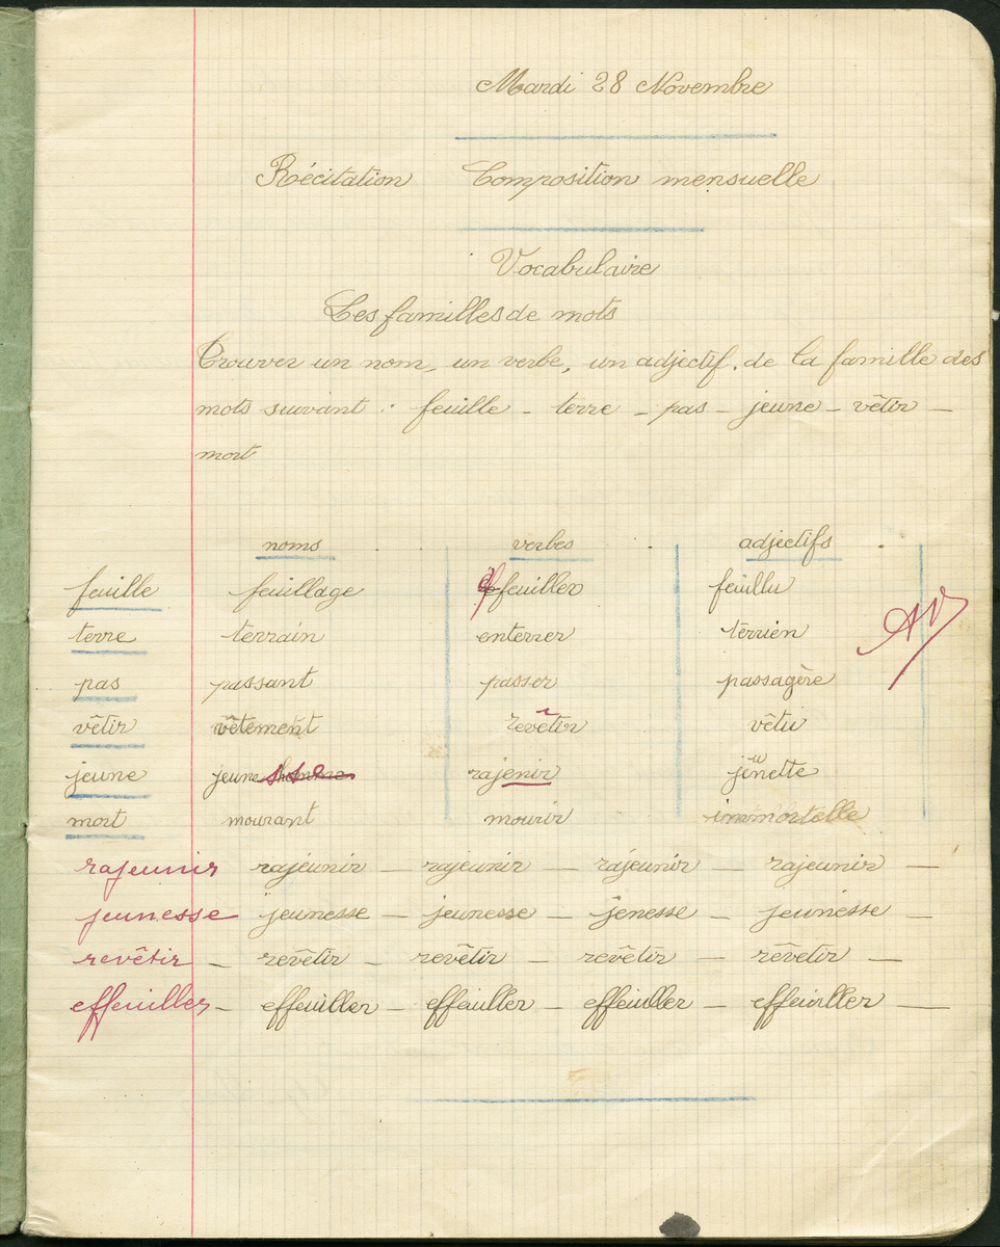 Mardi 28 Novembre
Récitation Composition mensuelle
Vocabulaire
Les familles de mots
Trouver un nom, un verbe, un adjectif, de la famille des
mots suivant : feuille - terre - pas - jeune - vêtir -
mort
noms verbes adjectifs
feuille feuillage effeuiller feuillu
terre terrain enterrer terrien
pas passant passer passagère
vêtir vêtement revêtir vêtu
jeune jeunesse rajenir jeunette
mort mourant mourir immortelle
rajeunir rajeunir - rajeunir - rajeunir - rajeunir -
jeunesse jeunesse - jeunesse - jenesse - jeunesse -
revêtir - revêtir - revêtir - revêtir - revêtir -
effeuiller - effeuiller - effeuiller - effeuiller - effeuiller -